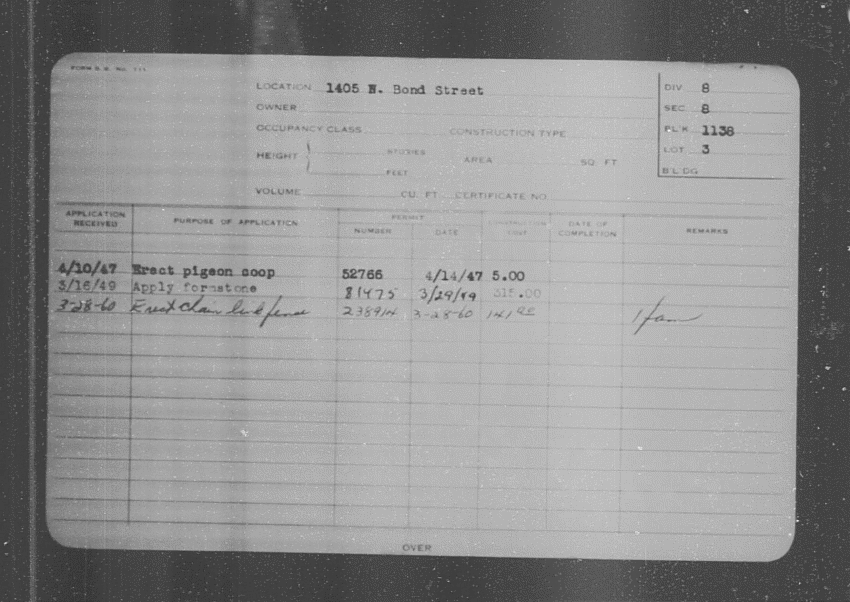 FORM B. E. NO. 111
LOCATION 1405 N. Bond Street
OWNER
OCCUPANCY CLASS CONSTRUCTION TYPE
HEIGHT STORIES FEET AREA SQ. FT
VOLUME CU. FT. CERTIFICATE NO.
DIV 8
SEC 8
BL'K 1138
LOT 3
B'LDG
APPLICATION RECEIVED PURPOSE OF APPLICATION PERMIT NUMBER DATE CONSTRUCTION COST DATE OF COMPLETION REMARKS
4/10/47 Erect pigeon coop 52766 4/14/47 5.00
3/16/49 Apply formstone 81475 3/29/49 315.00
3-28-60 Erect chain link fence 238914 3-28-60 141.00 1 fam
OVER